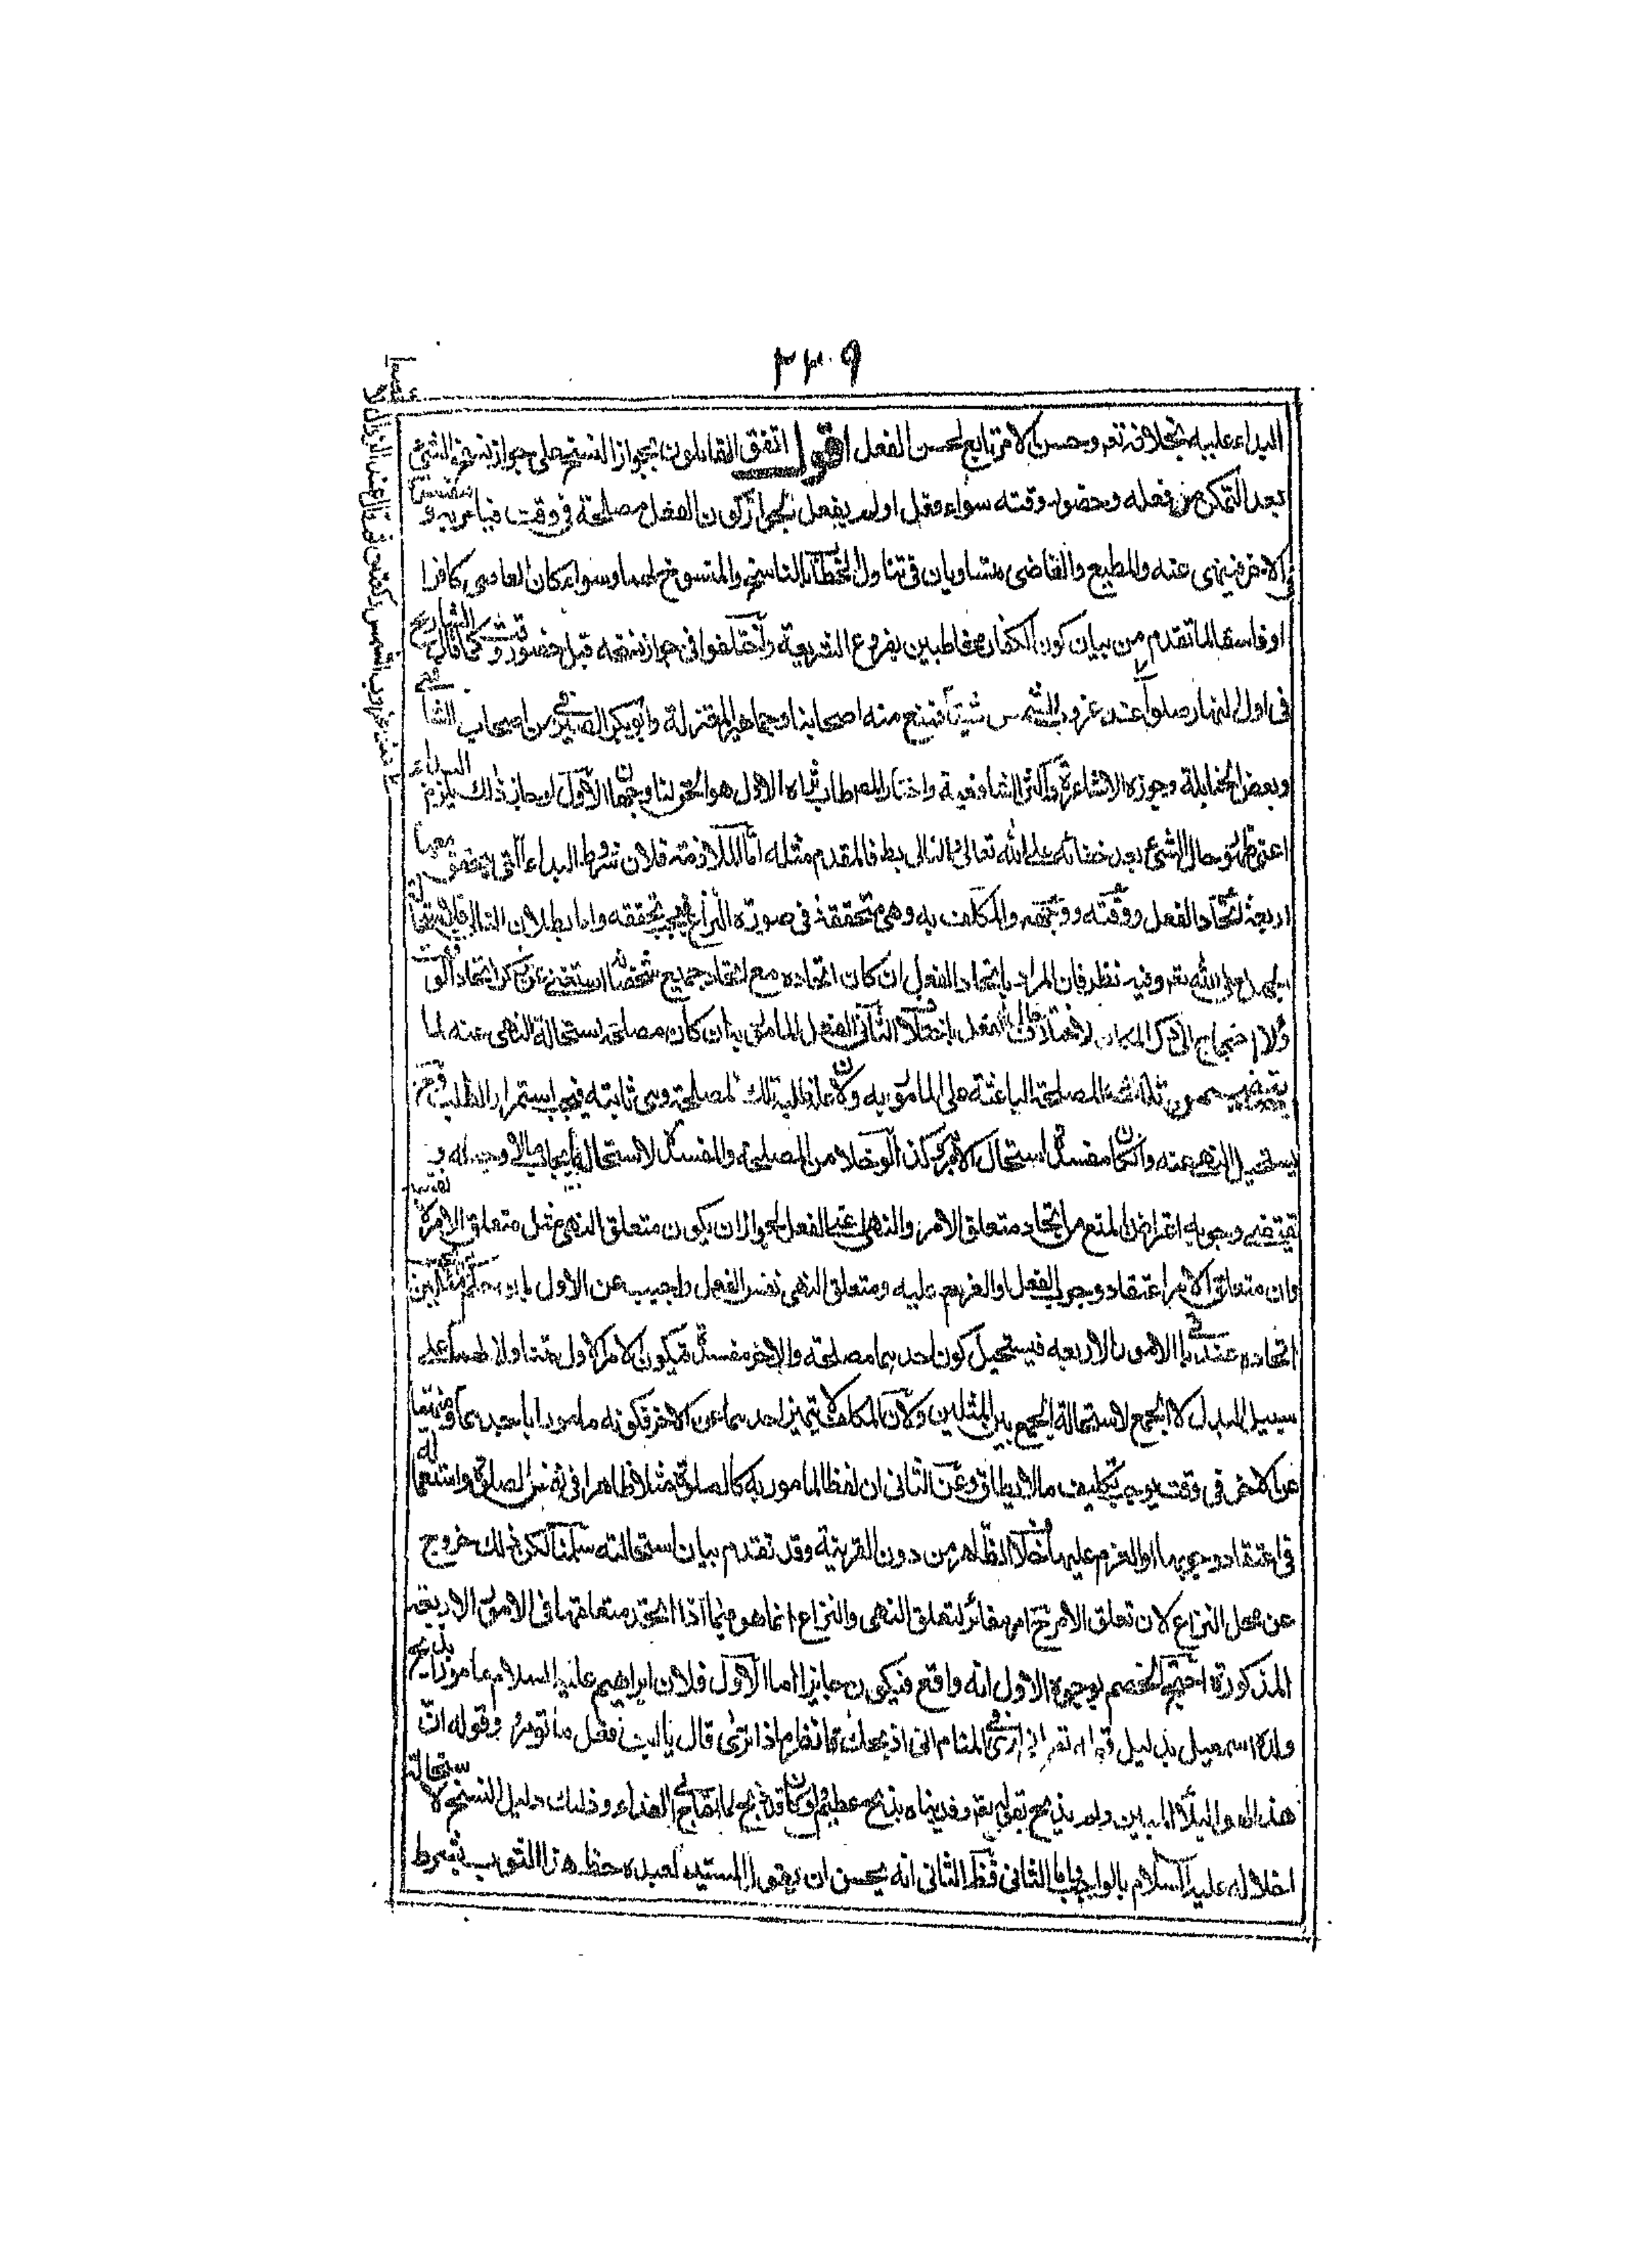 ٢٣٩
البداء عليه بخلافه تعه وحسن الامر تابع لحسن الفعل اقول اتفق القايلون بجواز النسخ على جواز نسخ الشئ
بعد التمكن من فعله وحضور وقته سواء فعل اولم يفعل لجواز كون الفعل مصلحة فى وقت فيامر به و مفسدة
فى الاخر فينهى عنه والمطيع والعاصى متساويان فى تناول الخطاب الناسخ والمنسوخ لهما وسواء كان العاصى كافرا
او فاسقا لما تقدم من بيان كون الكفار مخاطبين بفروع الشريعة واختلفوا فى جواز نسخه قبل حضور وقته كما قال الشارع
فى اول النهار صلوا عند غروب الشمس شيئا فمنع منه اصحابنا وجماهير المعتزلة وابو بكر الصيرفى من اصحاب الشافعى
وبعض الحنابلة وجوزه الاشاعرة واكثر الشافعية واختار المصر طاب ثراه الاول هو الحق لنا وجهان الاول لو جاز ذلك يلزم البداء
اعنى ظهور حال الشئ بعد خفائه على الله تعالى والتالى بط فالمقدم مثله اما الملازمة فلان شروط البداء التى يتحقق معها
اربعة اتحاد الفعل ووقته ووجهه والمكلف به وهى متحققة فى صورة النزاع فيجب تحققه واما بطلان التالى فلاستحالة
الجهل على الله تعه وفيه نظر فان المراد باتحاد الفعل ان كان اتحاده مع اتحاد جميع مشخصاته استغنى عن ذكر اتحاد الوقت
الثانى الفعل المامور به ان كان مصلحة استحالة النهى عنه لما
المصلحة الباعثة على المامور به ولان جالبة تلك المصلحة وهى ثابتة فيجب استمرار الطلب وحينئذ
يستحيل النهى عنه وان كان مفسدة استحال الامر به وكذا لو خلا من المصلحة والمفسدة لاستحالة ايجاب ما لا وجه له
يقتضى وجوبه اعترض بالمنع من اتحاد متعلق الامر والنهى عند الفعل لجواز ان يكون متعلق النهى مثل متعلق الامر
وان متعلق الامر اعتقاد وجوب الفعل او العزم عليه ومتعلق النهى نفس الفعل واجيب عن الاول بانه حكم مثلين
اتحاده عندنا فى الامور الاربعه فيستحيل كون احدهما مصلحة والاخر مفسدة فيكون الامر الاول متناولا لهما على
سبيل البدل لا الجمع لاستحالة الجمع بين المثلين ولان المكلف لا يتميز احدهما عن الاخر فكونه مامورا باحدهما ومنهيا
عن الاخر فى وقت يوجب تكليف ما لا يطاق وعن الثانى ان لفظ المامور به كالصلوة مثلا ظاهرا فى نفس الصلوة واستعماله
فى اعتقاد وجوبها او العزم عليها خلاف الظاهر من دون القرينة وقد تقدم بيان استحالته سلمنا لكن ذلك خروج
عن محل النزاع لان تعلق الامر ح امر مغائر لتعلق النهى والنزاع انما هو فيما اذا اتحد متعلقهما فى الامور الاربعة
المذكورة احتج الخصم بوجوه الاول انه واقع فيكون جايزا اما الاول فلان ابراهيم عليه السلام مامورا بذبح
ولده اسمعيل بدليل قوله تعه انى ارى فى المنام انى اذبحك فانظر ماذا ترى قال يا ابت افعل ما تومر وقوله ان
هذا لهو البلاء المبين ولم يذبح بقوله تعه وفديناه بذبح عظيم ولو كان قد ذبح لما احتاج الى الفداء وذلك دليل النسخ لاستحالة
اخلاله عليه السلام بالواجب واما الثانى فظ الثانى انه يحسن ان يقول السيد لعبده حفظ هذا الثوب بشرط